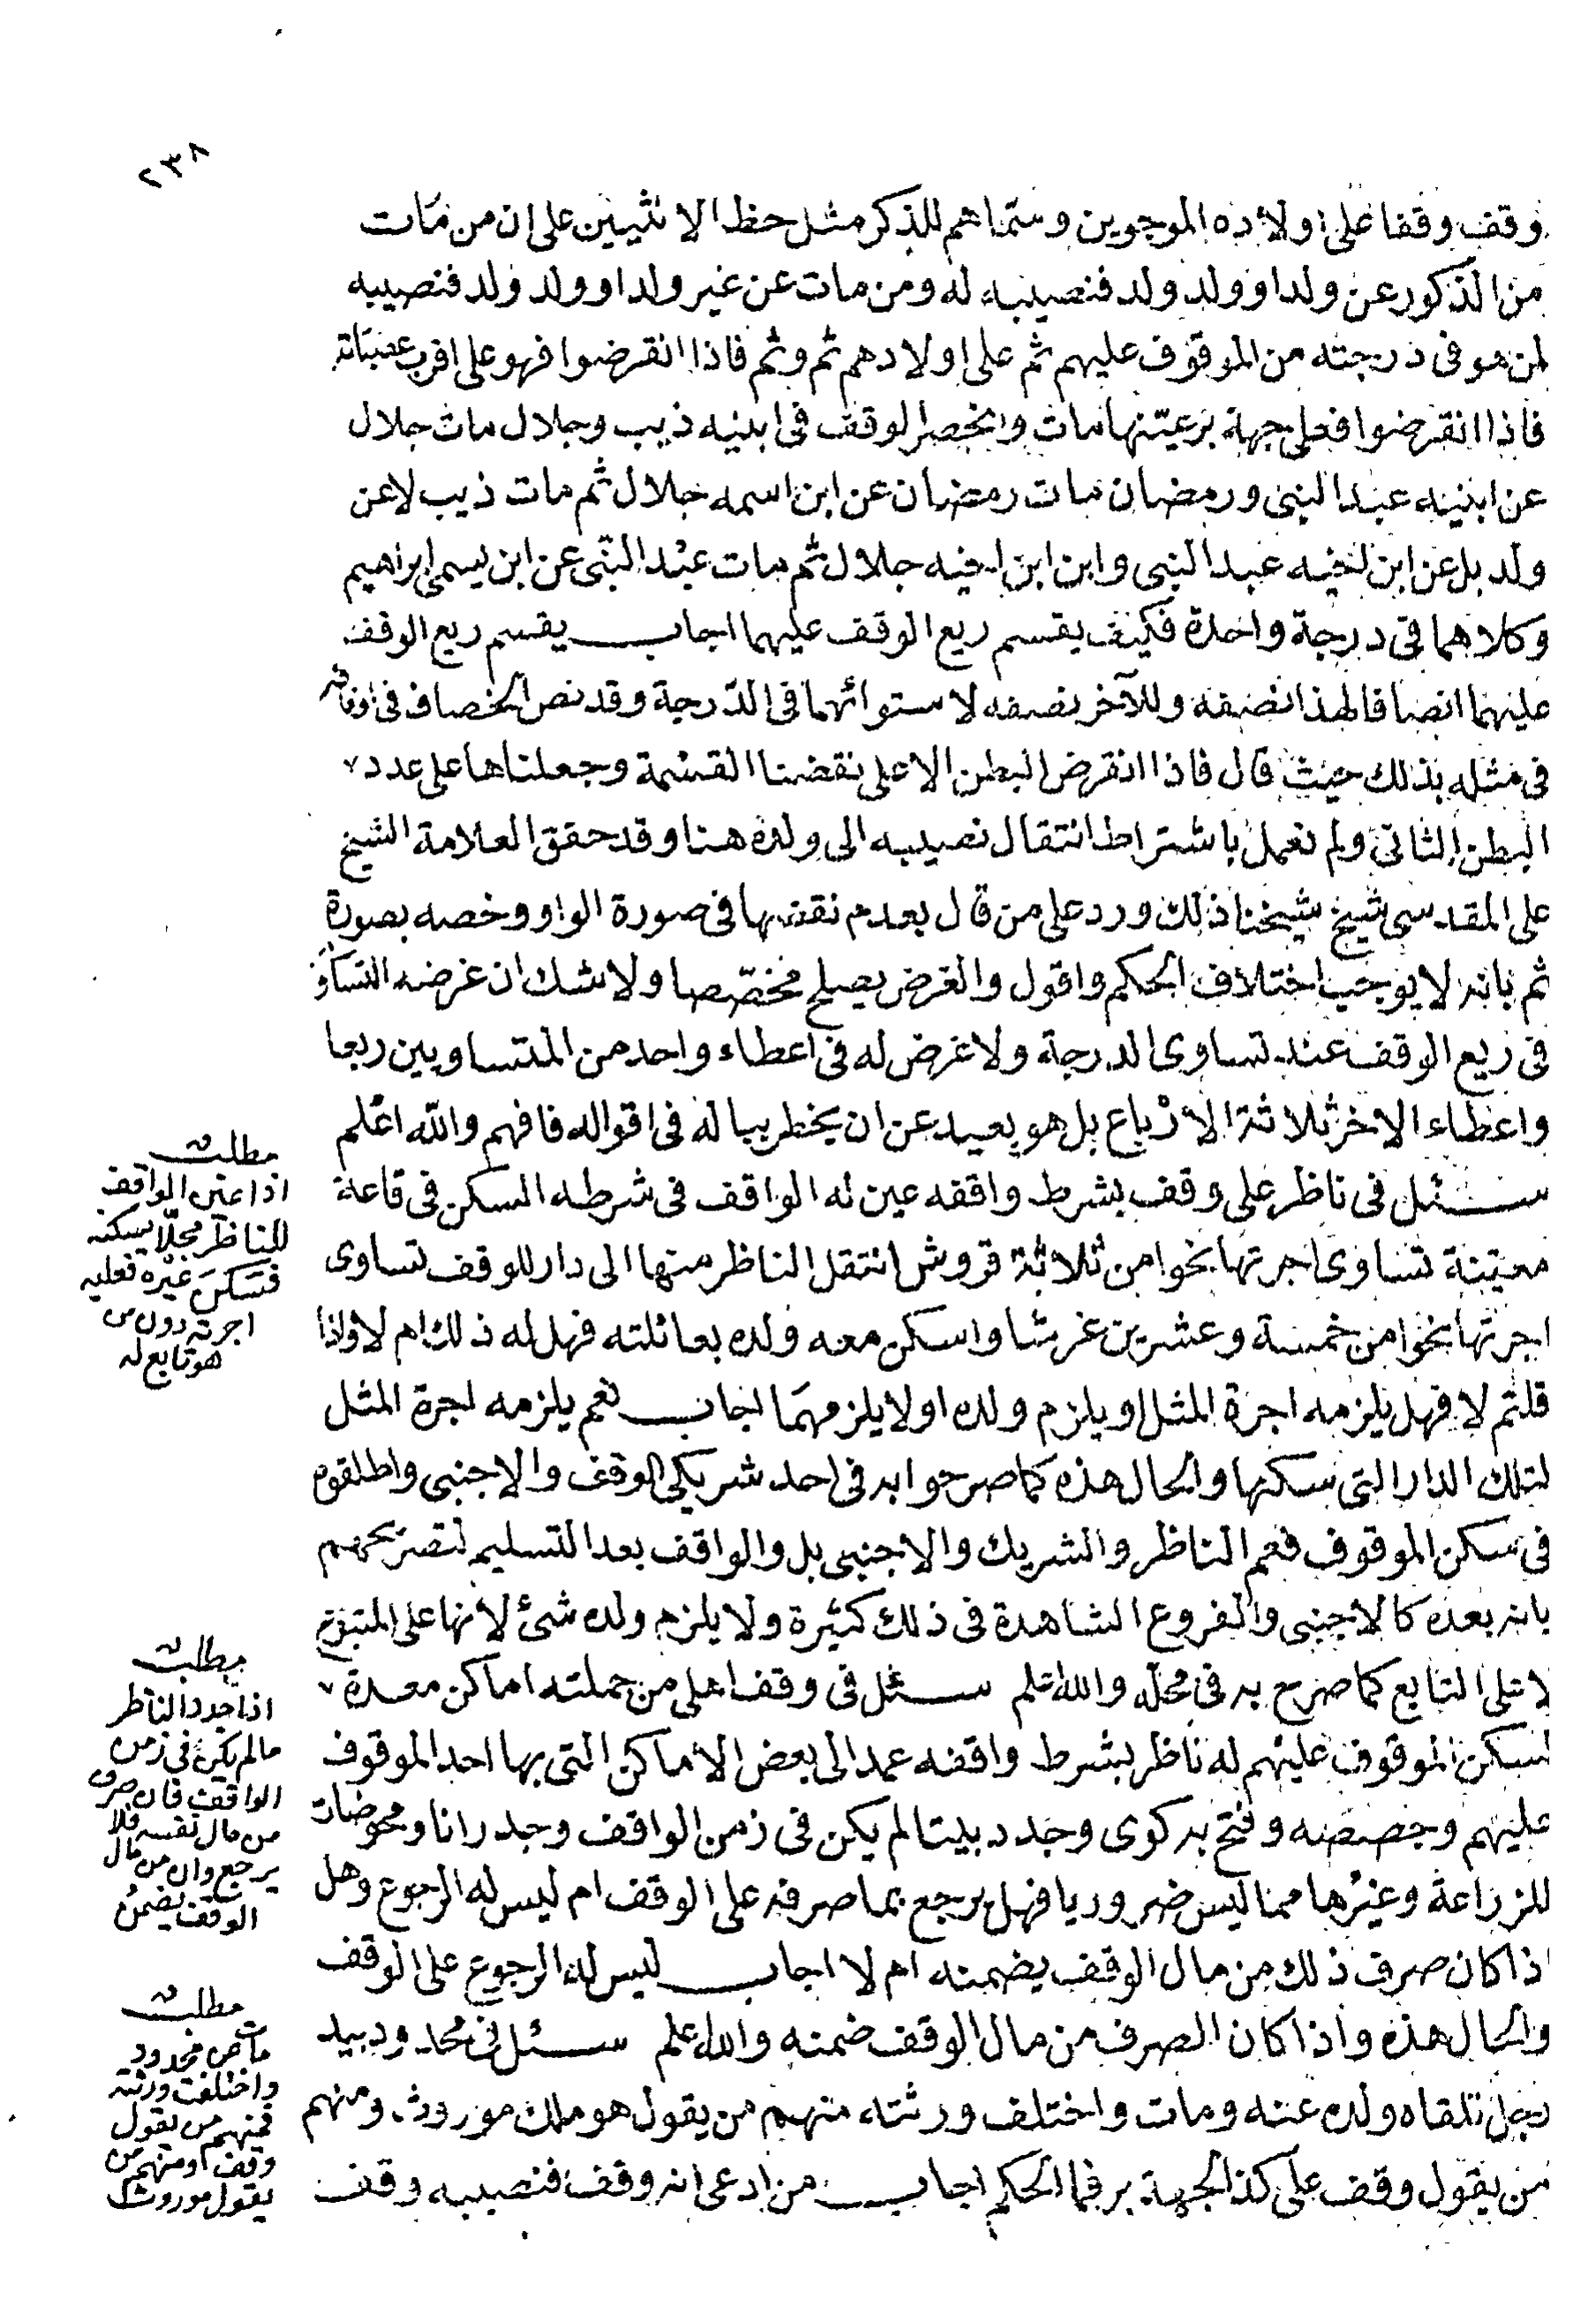 ٢٣٨
وقف وقفا على اولاده الموجوين وسماهم للذكر مثل حظ الانثيين على ان من مات
من الذكور عن ولد او ولد ولد فنصيبه له ومن مات عن غير ولد او ولد ولد فنصيبه
لمن هو فى درجته من الموقوف عليهم ثم على اولادهم ثم وثم فاذا انقرضوا فهو على اقرب عصباته
فاذا انقرضوا فعلى جهة بر عينها مات وانحصر الوقف فى ابنيه ذيب وجلال مات جلال
عن ابنيه عبد النبى ورمضان مات رمضان عن ابن اسمه جلال ثم مات ذيب لا عن
ولد بل عن ابن اخيه عبد النبى وابن ابن اخيه جلال ثم مات عبد النبى عن ابن يسمى ابراهيم
وكلاهما فى درجة واحدة فكيف يقسم ريع الوقف عليهما اجاب يقسم ريع الوقف
عليهما انصافا لهذا نصفه وللآخر نصفه لاستوائهما فى الدرجة وقد نص الخصاف فى اوقافه
فى مثله بذلك حيث قال فاذا انقرض البطن الاعلى نقضنا القسمة وجعلناها على عدد
البطن الثانى ولم نعمل باشتراط انتقال نصيبه الى ولده هنا وقد حقق العلامة الشيخ
على المقدسى شيخ شيخنا ذلك ورد على من قال بعدم نقضها فى صورة الواو وخصه بصورة
ثم بانه لا يوجب اختلاف الحكم واقول والغرض يصلح مخصصا ولا شك ان غرضه التساوى
فى ريع الوقف عند تساوى الدرجة ولا غرض له فى اعطاء واحد من المتساويين ربعا
واعطاء الاخر ثلاثة الارباع بل هو بعيد عن ان يخطر بباله فى اقواله فافهم والله اعلم
سئل فى ناظر على وقف بشرط واقفه عين له الواقف فى شرطه السكن فى قاعة
معينة تساوى اجرتها نحوا من ثلاثة قروش انتقل الناظر منها الى دار للوقف تساوى
اجرتها نحوا من خمسة وعشرين غرشا واسكن معه ولده بعائلته فهل له ذلك ام لا واذا
قلتم لا فهل يلزمه اجرة المثل او يلزم ولده او لا يلزمهما اجاب نعم يلزمه اجرة المثل
لتلك الدار التى سكنها والحال هذه كما صرحوا به فى احد شريكى الوقف والاجنبى واطلقوه
فى سكن الموقوف فعم الناظر والشريك والاجنبى بل والواقف بعد التسليم لتصريحهم
بانه بعده كالاجنبى والفروع الشاهدة فى ذلك كثيرة ولا يلزم ولده شئ لانها على المتبوع
لا على التابع كما صرح به فى محله والله اعلم سئل فى وقف اهلى من جملته اماكن معدة
لسكن الموقوف عليهم له ناظر بشرط واقفه عمد الى بعض الاماكن التى بها احد الموقوف
عليهم وجصصه وفتح به كوى وجدد بيتا لم يكن فى زمن الواقف وجدرانا ومحوضات
للزراعة وغيرها مما ليس ضروريا فهل يرجع بما صرفه على الوقف ام ليس له الرجوع وهل
اذا كان صرف ذلك من مال الوقف يضمنه ام لا اجاب ليس له الرجوع على الوقف
والحال هذه واذا كان الصرف من مال الوقف ضمنه والله اعلم سئل فى محدود بيد
رجل تلقاه ولده عنه ومات واختلف ورثته منهم من يقول هو ملك موروث ومنهم
من يقول وقف على كذا لجهة بر فما الحكم اجاب من ادعى انه وقف فنصيبه وقف
مطلب
اذا عين الواقف
للناظر محلا يسكنه
فسكن غيره فعليه
اجرته دون من
هو تابع له
مطلب
اذا جدد الناظر
مالم يكن فى زمن
الواقف فان صرف
من مال نفسه فلا
يرجع وان من مال
الوقف يضمن
مطلب
مات عن محدود
واختلفت ورثته
فمنهم من يقول
وقف ومنهم من
يقول موروث